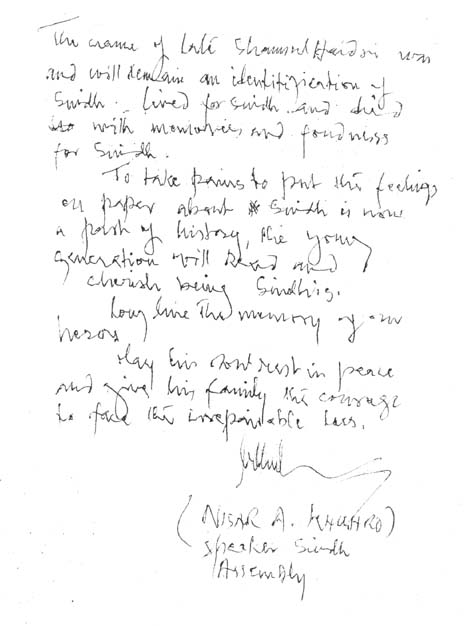 The name of Late Shamsul Haidri was
and will remain an identitification of
Sindh. Lived for Sindh and died
with memories and fondness
for Sindh.
To take pains to put the feelings
on paper about Sindh is now
a part of history, the young
generation will Read and
cherish being Sindhis.
Long live the memory of our
heros
May his soul rest in peace
and give his family the courage
to face the irrepairable loss.
(NISAR A. KHUHRO)
Speaker Sindh
Assembly